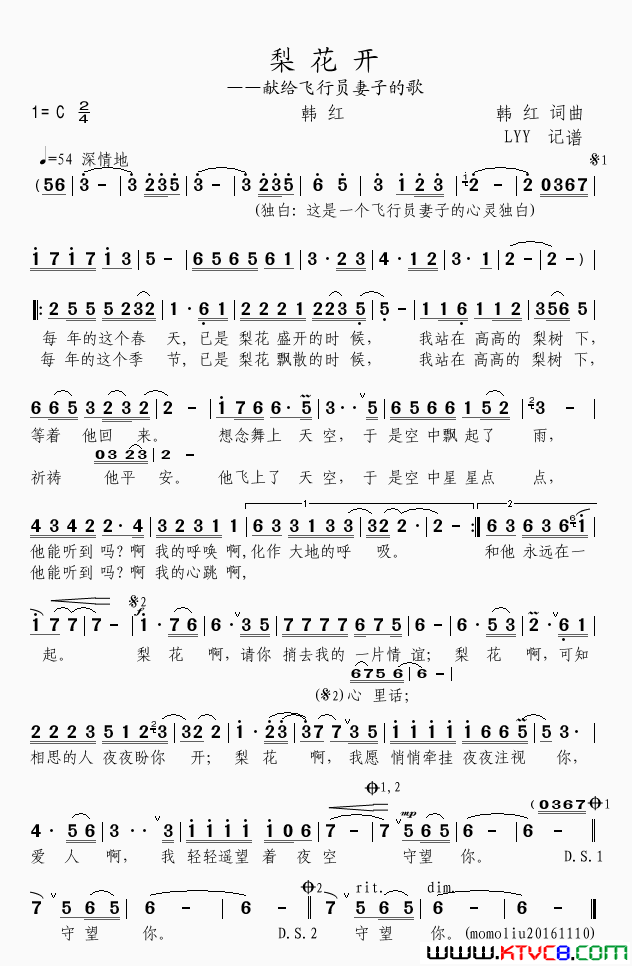 梨花开
——献给飞行员妻子的歌
1= C 2/4 韩 红 韩 红 词曲
LYY 记谱
♩=54 深情地 𝄋1
(56 | 3 - | 3 235 | 3 - | 3 235 | 6 5 | 3 123 | 2 - | 2 0367 |
(独白: 这是一个飞行员妻子的心灵独白)
1 7 1 7 1 3 | 5 - | 656561 | 3·23 | 4·12 | 3·1 | 2 - | 2 - ) |
‖: 2 55 5232 | 1·61 | 2221 2235 | 5 - | 116 112 | 356 5 |
每 年的这个春 天, 已是 梨花 盛开的时 候, 我站在 高高的 梨树 下,
每 年的这个季 节, 已是 梨花 飘散的时 候, 我站在 高高的 梨树 下,
665 3 232 | 2 - | 176 6·5 | 3··5 | 6566 152 | 3 - |
等着 他回 来。 想念舞上 天 空, 于 是空 中飘 起了 雨,
03 23 | 2 -
祈祷 他平 安。 他飞上了 天 空, 于 是空 中星 星点 点,
1. 2.
4342 2·4 | 3231 1 | 633133 | 322· | 2 - :‖ 63 636 1 |
他能听到 吗? 啊 我的呼唤 啊, 化作 大地的呼 吸。 和他 永远在一
他能听到 吗? 啊 我的心跳 啊,
𝄋2
1 77 | 7 - | 1·76 | 6·35 | 7777 675 | 6·6 | 6·53 | 2·61 |
起。 梨 花 啊, 请你 捎去我的 一片情 谊; 梨 花 啊, 可知
6756 | 6 - |
(𝄋2)心 里话;
2223 512 3 | 322 | 1·23 | 37 7·35 | 1111 1665 | 53· |
相思的人 夜夜盼你 开; 梨 花 啊, 我愿 悄悄牵挂 夜夜注视 你,
𝄌1,2
mp (0367 𝄌1
4·56 | 3··3 | 1111 106 | 7 - | 7 565 | 6 - | 6 - ‖
爱 人 啊, 我 轻轻遥望 着 夜 空 守望 你。 D.S.1
𝄌2 rit. dim.
7 565 | 6 - | 6 - ‖ 7 565 | 6 - | 6 - ‖
守 望 你。 D.S.2 守 望 你。(momoliu20161110)
www.KTVC8.com